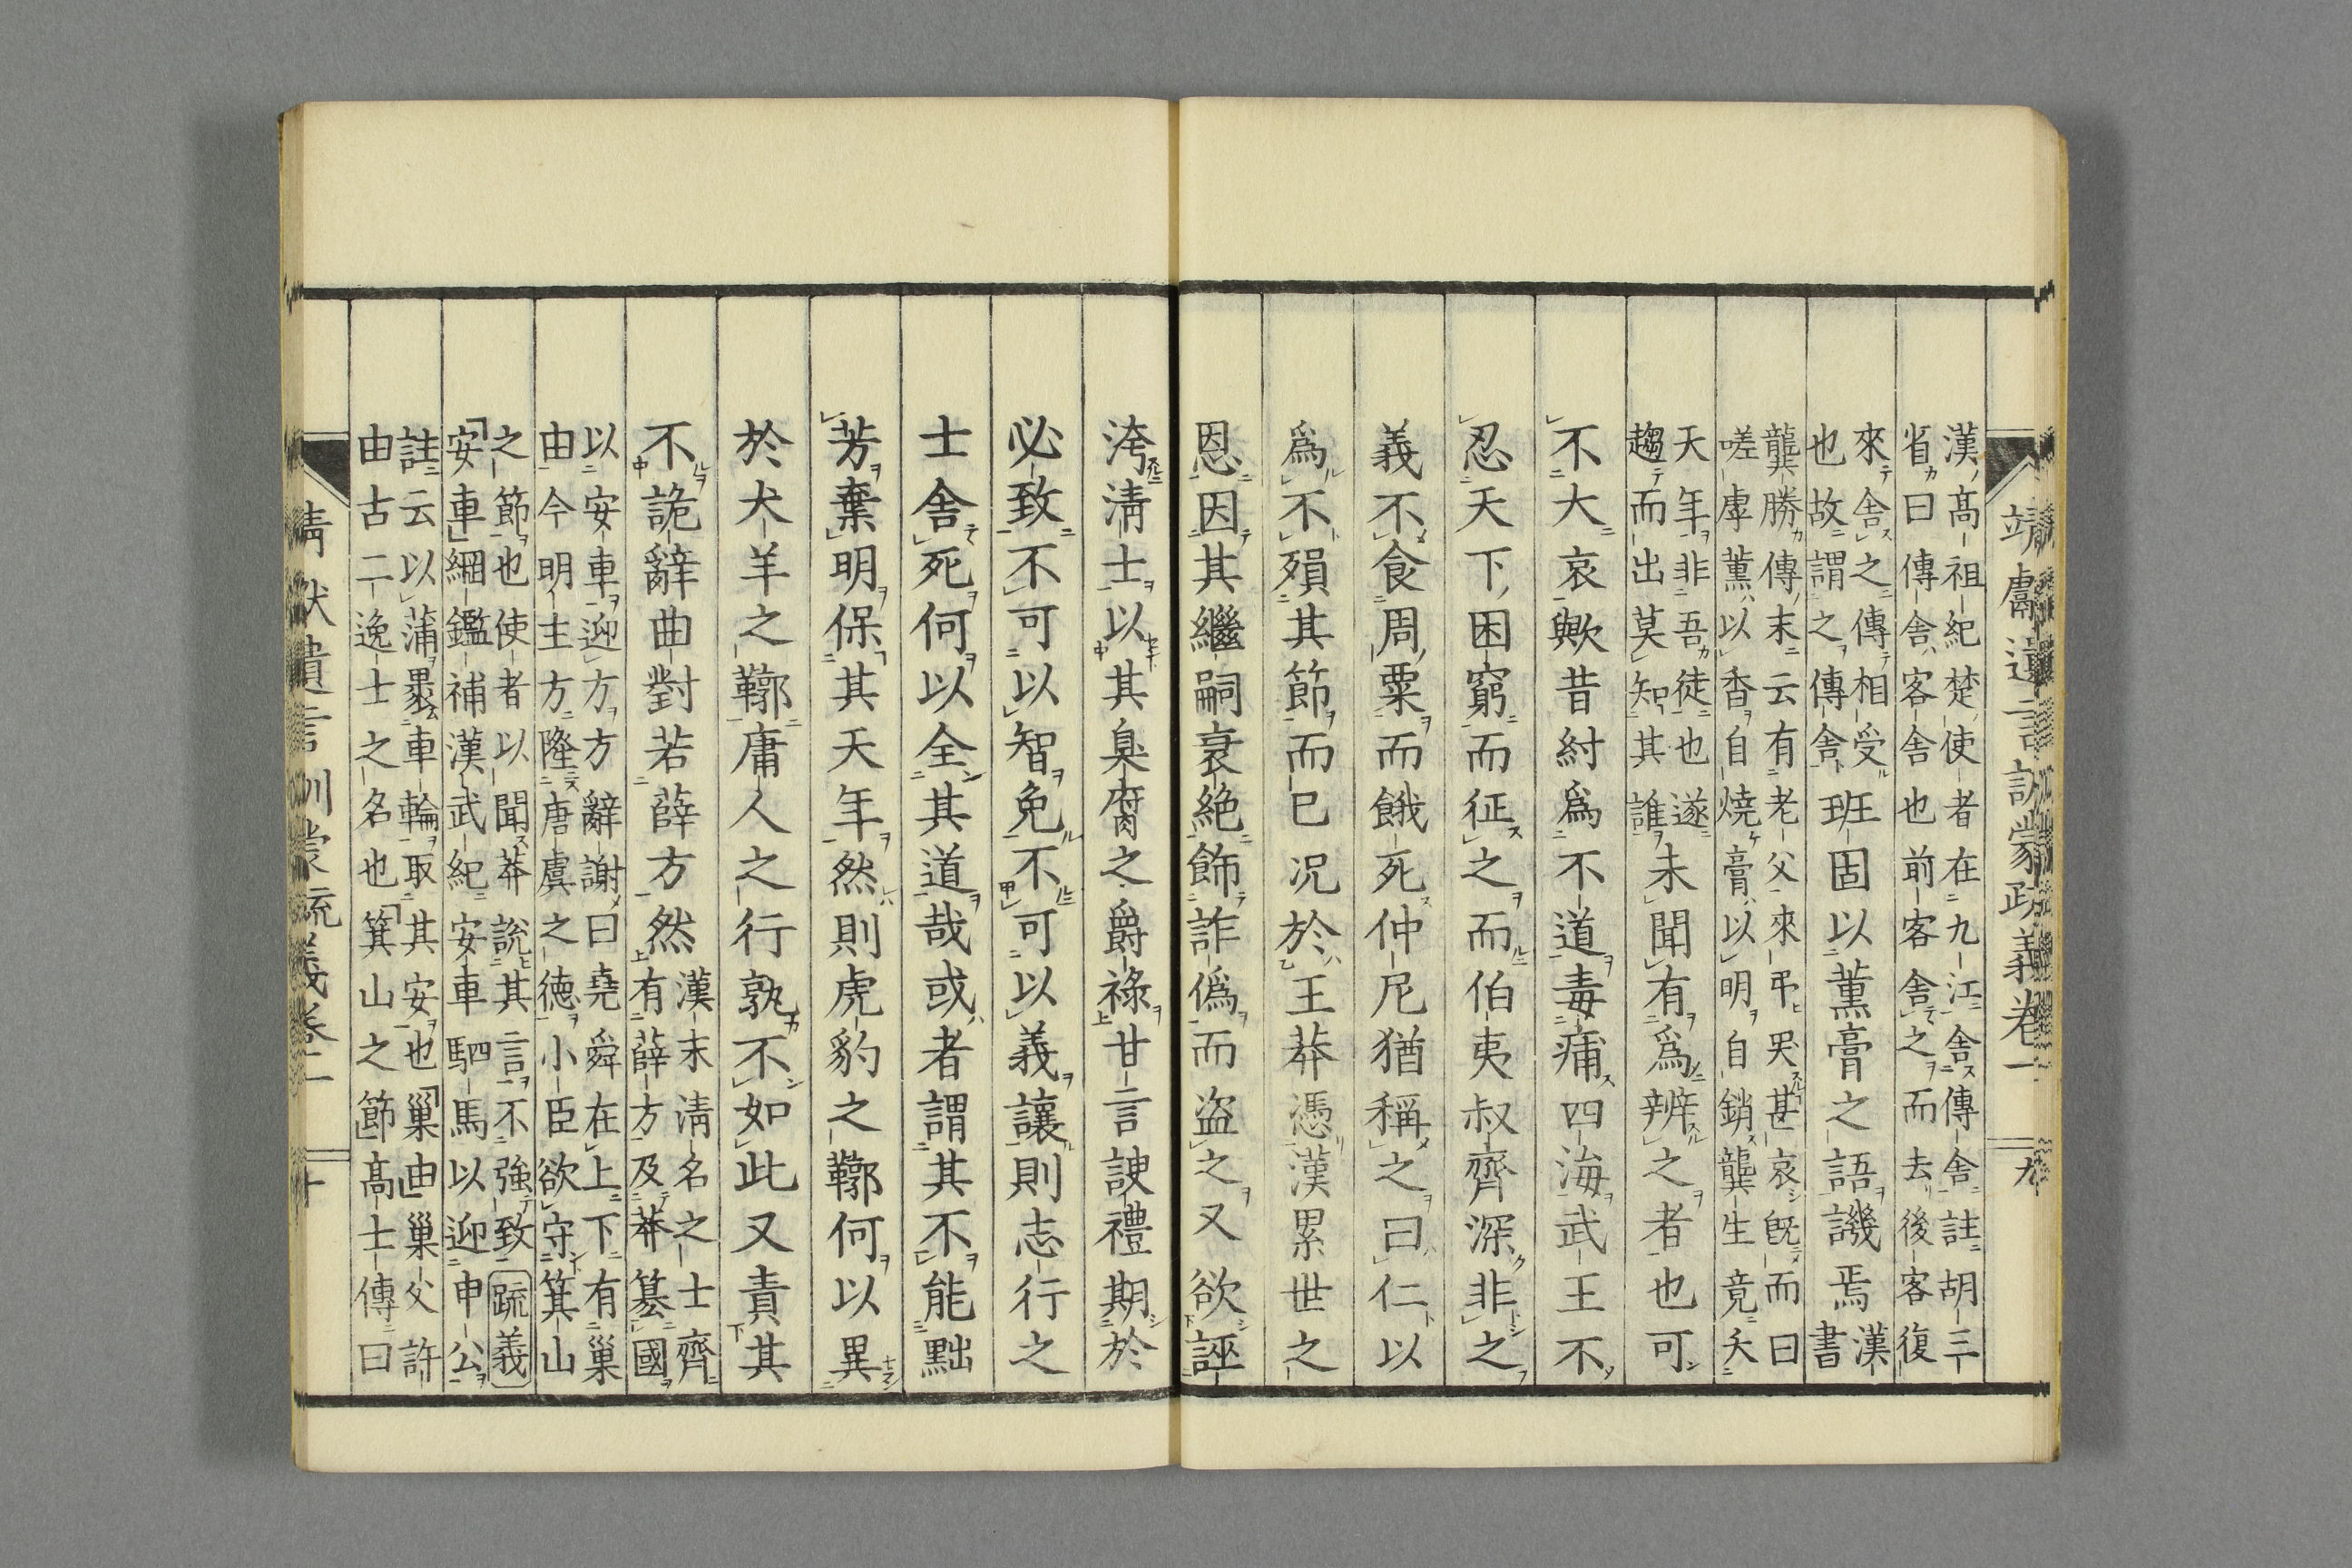 靖獻遺言訓蒙疏義卷一 九
漢高祖紀楚使者在九江舍傳舍註胡三
省曰傳舍客舍也前客舍之而去後客復
來舍之傳相受
也故謂之傳舍
班固以薰膏之語譏焉
漢
書
龔勝傳末云有老父來弔哭甚哀既而曰
嗟虖薰以香自燒膏以明自銷龔生竟夭
天年非吾徒也遂
趨而出莫知其誰
未聞有爲辨之者也可
不大哀歟昔紂爲不道毒痡四海武王不
忍天下困窮而征之而伯夷叔齊深非之
義不食周粟而餓死仲尼猶稱之曰仁以
爲不殞其節而已况於王莽憑漢累世之
恩因其繼嗣衰絶飾詐僞而盗之又欲誣
洿淸士以其臭腐之爵祿甘言諛禮期於
必致不可以智免不可以義讓則志行之
士舍死何以全其道哉或者謂其不能黜
芳棄明保其天年然則虎豹之鞹何以異
於犬羊之鞹庸人之行孰不如此又責其
不詭辭曲對若薛方然
漢末淸名之士齊
有薛方及莽簒國
以安車迎方方辭謝曰堯舜在上下有巢
由今明主方隆唐虞之德小臣欲守箕山
之節也使者以聞莽説其言不強致疏義
「安車」綱鑑補漢武紀安車駟馬以迎申公
註云以蒲裹車輪取其安也「巢由」巢父許
由古二逸士之名也「箕山之節」高士傳曰
靖獻遺言訓蒙疏義卷一 十